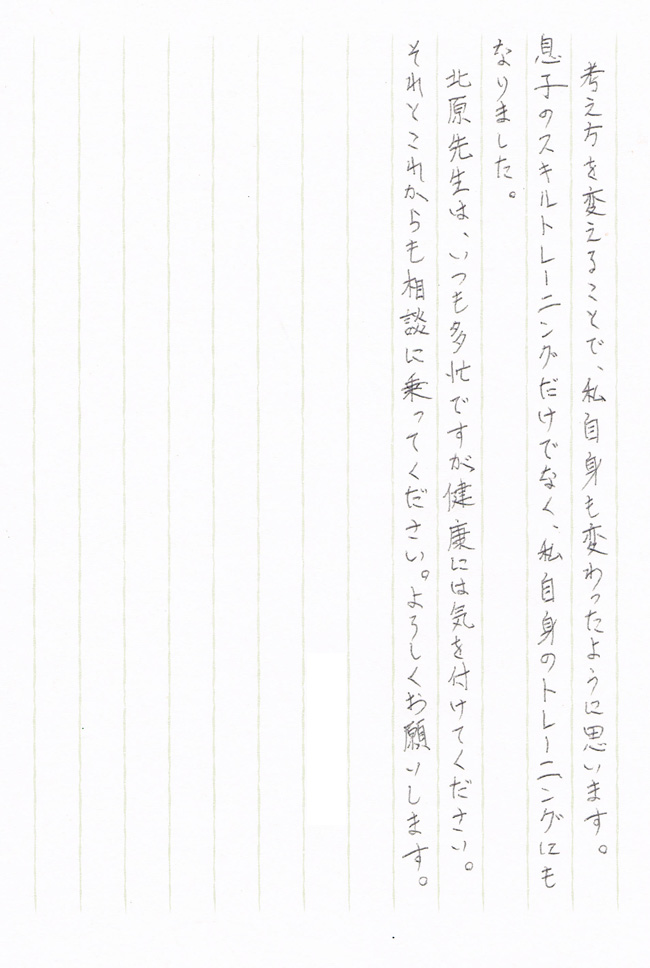 考え方を変えることで、私自身も変わったように思います。
息子のスキルトレーニングだけでなく、私自身のトレーニングにも
なりました。
北原先生は、いつも多忙ですが健康には気を付けてください。
それとこれからも相談に乗ってください。よろしくお願いします。